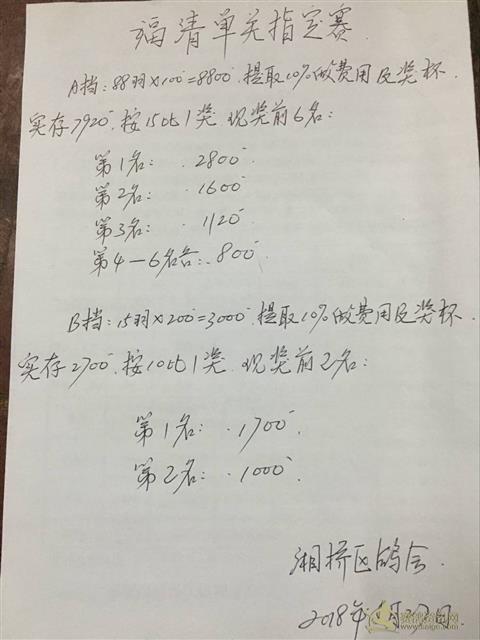 福清单关指定赛
A挡:88羽×100=8800.提取10%做费用及奖杯.
实存7920.按15比1奖.现奖前6名:
第1名: 2800
第2名: 1600
第3名: 1120
第4-6名各: 800
B挡:15羽×200=3000.提取10%做费用及奖杯.
实存2700.按10比1奖.现奖前2名:
第1名: 1700
第2名: 1000
湘桥区鸽会
2018年 月 日